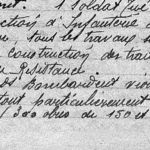 1 Soldat
ction d'Infanterie
tous les travaux
construction des tra
Résistance
Bombardent
tout particulièrement
300 obus de 150 et